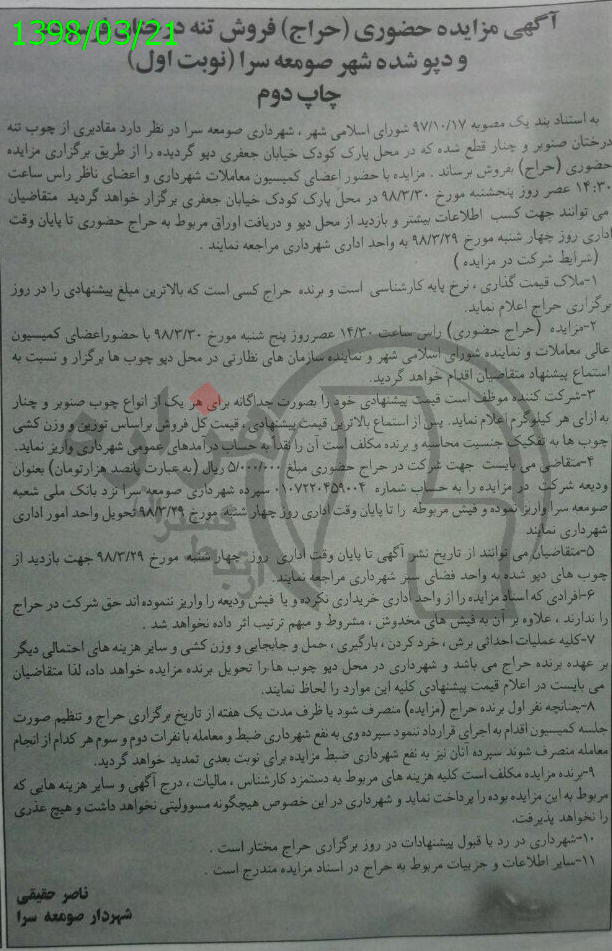 1398/03/21
آگهی مزایده حضوری (حراج) فروش تنه
و دپو شده شهر صومعه سرا (نوبت اول)
چاپ دوم
به استناد بند یک مصوبه ۹۷/۱۰/۱۷ شورای اسلامی شهر ، شهرداری صومعه سرا در نظر دارد مقادیری از چوب تنه
درختان صنوبر و چنار قطع شده که در محل پارک کودک خیابان جعفری دپو گردیده را از طریق برگزاری مزایده
حضوری (حراج) بفروش برساند . مزایده با حضور اعضای کمیسیون معاملات شهرداری و اعضای ناظر راس ساعت
۱۴:۳۰ عصر روز پنجشنبه مورخ ۹۸/۳/۳۰ در محل پارک کودک خیابان جعفری برگزار خواهد گردید متقاضیان
می توانند جهت کسب اطلاعات بیشتر و بازدید از محل دپو و دریافت اوراق مربوط به حراج حضوری تا پایان وقت
اداری روز چهار شنبه مورخ ۹۸/۳/۲۹ به واحد اداری شهرداری مراجعه نمایند .
(شرایط شرکت در مزایده )
۱-ملاک قیمت گذاری ، نرخ پایه کارشناسی است و برنده حراج کسی است که بالاترین مبلغ پیشنهادی را در روز
برگزاری حراج اعلام نماید.
۲-مزایده (حراج حضوری) راس ساعت ۱۴/۳۰ عصرروز پنج شنبه مورخ ۹۸/۳/۳۰ با حضوراعضای کمیسیون
عالی معاملات و نماینده شورای اسلامی شهر و نماینده سازمان های نظارتی در محل دپو چوب ها برگزار و نسبت به
استماع پیشنهاد متقاضیان اقدام خواهد گردید.
۳-شرکت کننده موظف است قیمت پیشنهادی خود را بصورت جداگانه برای هر یک از انواع چوب صنوبر و چنار
به ازای هر کیلوگرم اعلام نماید. پس از استماع بالاترین قیمت پیشنهادی ، قیمت کل فروش براساس توزین و وزن کشی
چوب ها به تفکیک جنسیت محاسبه و برنده مکلف است آن را نقدا به حساب درآمدهای عمومی شهرداری واریز نماید.
۴-متقاضی می بایست جهت شرکت در حراج حضوری مبلغ ۵/۰۰۰/۰۰۰ ریال (به عبارت پانصد هزارتومان) بعنوان
ودیعه شرکت در مزایده را به حساب شماره ۰۱۰۷۲۲۰۴۵۹۰۰۴ سپرده شهرداری صومعه سرا نزد بانک ملی شعبه
صومعه سرا واریز نموده و فیش مربوطه را تا پایان وقت اداری روز چهار شنبه مورخ ۹۸/۳/۲۹ تحویل واحد امور اداری
شهرداری نمایند
۵-متقاضیان می توانند از تاریخ نشر آگهی تا پایان وقت اداری روز چهار شنبه مورخ ۹۸/۳/۲۹ جهت بازدید از
چوب های دپو شده به واحد فضای سبز شهرداری مراجعه نمایند.
۶-افرادی که اسناد مزایده را از واحد اداری خریداری نکرده و یا فیش ودیعه را واریز ننموده اند حق شرکت در حراج
را ندارند ، علاوه بر آن به فیش های مخدوش ، مشروط و مبهم ترتیب اثر داده نخواهد شد .
۷-کلیه عملیات احداثی برش ، خرد کردن ، بارگیری ، حمل و جابجایی و وزن کشی و سایر هزینه های احتمالی دیگر
بر عهده برنده حراج می باشد و شهرداری در محل دپو چوب ها را تحویل برنده مزایده خواهد داد، لذا متقاضیان
می بایست در اعلام قیمت پیشنهادی کلیه این موارد را لحاظ نمایند.
۸-چنانچه نفر اول برنده حراج (مزایده) منصرف شود یا ظرف مدت یک هفته از تاریخ برگزاری حراج و تنظیم صورت
جلسه کمیسیون اقدام به اجرای قرارداد ننمود سپرده وی به نفع شهرداری ضبط و معامله با نفرات دوم و سوم هر کدام از انجام
معامله منصرف شوند سپرده آنان نیز به نفع شهرداری ضبط مزایده برای نوبت بعدی تمدید خواهد گردید.
۹-برنده مزایده مکلف است کلیه هزینه های مربوط به دستمزد کارشناس ، مالیات ، درج آگهی و سایر هزینه هایی که
مربوط به این مزایده بوده را پرداخت نماید و شهرداری در این خصوص هیچگونه مسوولیتی نخواهد داشت و هیچ عذری
را نخواهد پذیرفت.
۱۰-شهرداری در رد یا قبول پیشنهادات در روز برگزاری حراج مختار است .
۱۱-سایر اطلاعات و جزییات مربوط به حراج در اسناد مزایده مندرج است .
ناصر حقیقی
شهردار صومعه سرا